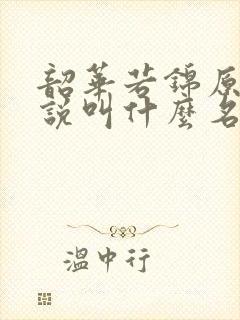 韶華若錦原
說叫什麼名
溫中行